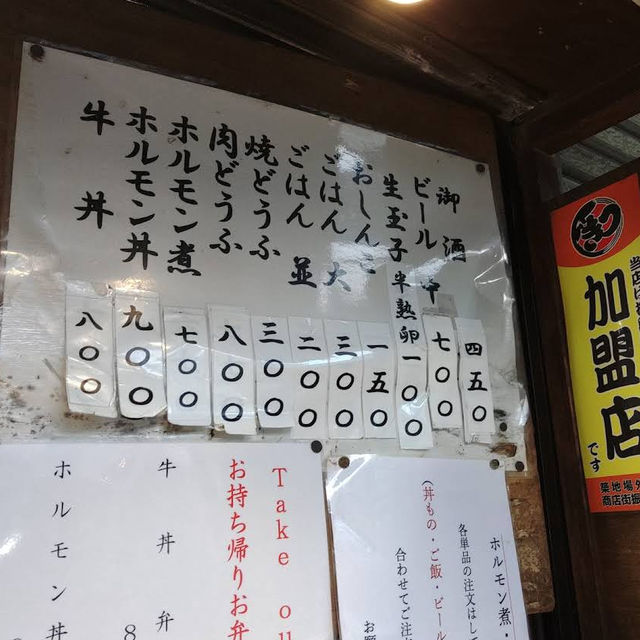 御酒 四五〇
ビール 中 七〇〇
生玉子 半熟卵 一〇〇
おしんこ 一五〇
ごはん 大 三〇〇
ごはん 並 二〇〇
焼どうふ 三〇〇
肉どうふ 八〇〇
ホルモン煮 七〇〇
ホルモン丼 九〇〇
牛丼 八〇〇
加盟店
です
築地場外
商店街振
ホルモン煮
各単品の注文はし
(丼もの・ご飯・ビール
合わせてご注
お願
Take ou
お持ち帰りお弁
牛丼弁
8
ホルモン丼